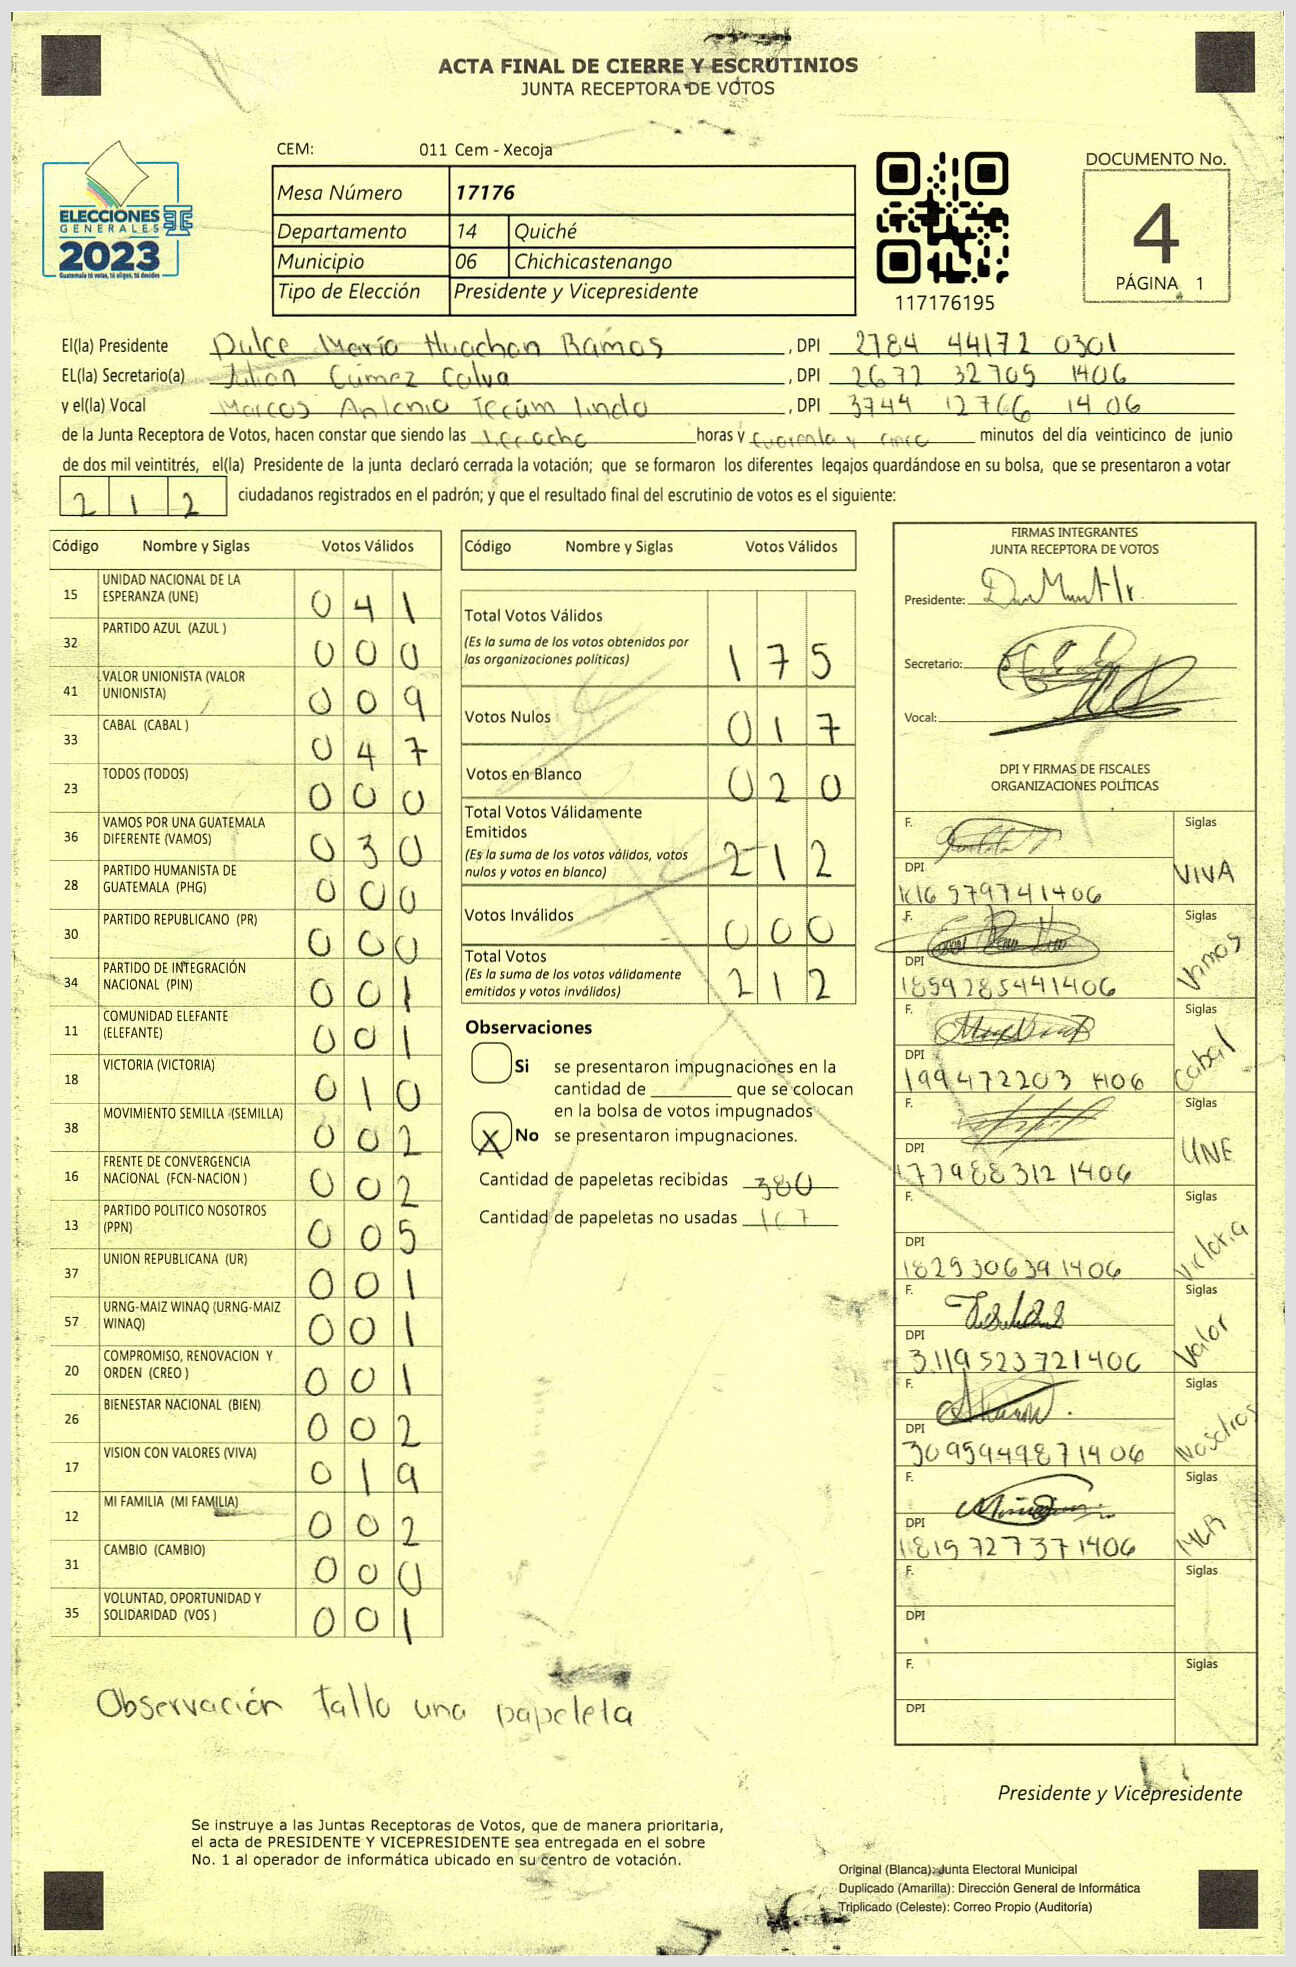 ACTA FINAL DE CIERRE Y ESCRUTINIOS
JUNTA RECEPTORA DE VOTOS
ELECCIONES
GENERALES
2023
Guatemala tú votas, tú eliges, tú decides
CEM: 011 Cem - Xecoja
Mesa Número 17176
Departamento 14 Quiché
Municipio 06 Chichicastenango
Tipo de Elección Presidente y Vicepresidente
117176195
DOCUMENTO No.
4
PÁGINA 1
El(la) Presidente Dulce María Huachon Ramos, DPI 2784 44172 0301
EL(la) Secretario(a) Julian Gúmez Calva, DPI 2672 32705 1406
y el(la) Vocal Marcos Antonio Tecúm lindo, DPI 3744 12766 1406
de la Junta Receptora de Votos, hacen constar que siendo las horas y cuarenta y cinco minutos del día veinticinco de junio
de dos mil veintitrés, el(la) Presidente de la junta declaró cerrada la votación; que se formaron los diferentes legajos guardándose en su bolsa, que se presentaron a votar
212 ciudadanos registrados en el padrón; y que el resultado final del escrutinio de votos es el siguiente:
Código Nombre y Siglas Votos Válidos
15 UNIDAD NACIONAL DE LA ESPERANZA (UNE) 041
32 PARTIDO AZUL (AZUL ) 000
41 VALOR UNIONISTA (VALOR UNIONISTA) 009
33 CABAL (CABAL ) 047
23 TODOS (TODOS) 000
36 VAMOS POR UNA GUATEMALA DIFERENTE (VAMOS) 030
28 PARTIDO HUMANISTA DE GUATEMALA (PHG) 000
30 PARTIDO REPUBLICANO (PR) 000
34 PARTIDO DE INTEGRACIÓN NACIONAL (PIN) 001
11 COMUNIDAD ELEFANTE (ELEFANTE) 001
18 VICTORIA (VICTORIA) 010
38 MOVIMIENTO SEMILLA (SEMILLA) 002
16 FRENTE DE CONVERGENCIA NACIONAL (FCN-NACION ) 002
13 PARTIDO POLITICO NOSOTROS (PPN) 005
37 UNION REPUBLICANA (UR) 001
57 URNG-MAIZ WINAQ (URNG-MAIZ WINAQ) 001
20 COMPROMISO, RENOVACION Y ORDEN (CREO ) 001
26 BIENESTAR NACIONAL (BIEN) 002
17 VISION CON VALORES (VIVA) 019
12 MI FAMILIA (MI FAMILIA) 002
31 CAMBIO (CAMBIO) 000
35 VOLUNTAD, OPORTUNIDAD Y SOLIDARIDAD (VOS ) 001
Código Nombre y Siglas Votos Válidos
Total Votos Válidos 175
(Es la suma de los votos obtenidos por
las organizaciones políticas)
Votos Nulos 017
Votos en Blanco 020
Total Votos Válidamente
Emitidos 212
(Es la suma de los votos válidos, votos
nulos y votos en blanco)
Votos Inválidos 000
Total Votos 212
(Es la suma de los votos válidamente
emitidos y votos inválidos)
Observaciones
Si se presentaron impugnaciones en la
cantidad de ________ que se colocan
en la bolsa de votos impugnados
X No se presentaron impugnaciones.
Cantidad de papeletas recibidas 380
Cantidad de papeletas no usadas 167
FIRMAS INTEGRANTES
JUNTA RECEPTORA DE VOTOS
Presidente:
Secretario:
Vocal:
DPI Y FIRMAS DE FISCALES
ORGANIZACIONES POLÍTICAS
F. Siglas VIVA
DPI 579741406
F. Siglas Vamos
DPI 1859285441406
F. Siglas Cabal
DPI 199472203 1406
F. Siglas UNE
DPI 177988312 1406
F. Siglas Victoria
DPI 182530639 1406
F. Siglas Valor
DPI 3119523721406
F. Siglas Nosotros
DPI 3095949871406
F. Siglas
DPI 1815727371406
F. Siglas
DPI
F. Siglas
DPI
Observación fallo una papeleta
Presidente y Vicepresidente
Se instruye a las Juntas Receptoras de Votos, que de manera prioritaria,
el acta de PRESIDENTE Y VICEPRESIDENTE sea entregada en el sobre
No. 1 al operador de informática ubicado en su centro de votación.
Original (Blanca): Junta Electoral Municipal
Duplicado (Amarilla): Dirección General de Informática
Triplicado (Celeste): Correo Propio (Auditoría)